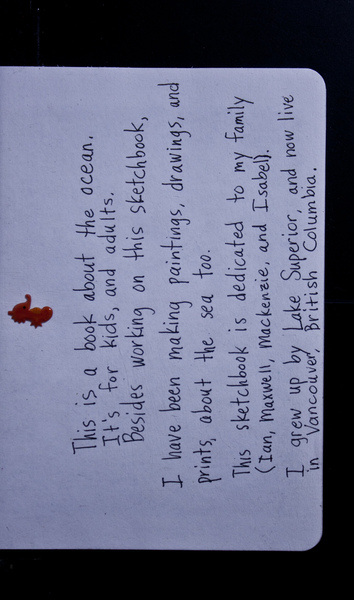 This is a book about the ocean.
It's for kids, and adults.
Besides working on this sketchbook,
I have been making paintings, drawings, and
prints, about the sea too.
This sketchbook is dedicated to my family
(Ian, Maxwell, Mackenzie, and Isabel).
I grew up by Lake Superior, and now live
in Vancouver, British Columbia.